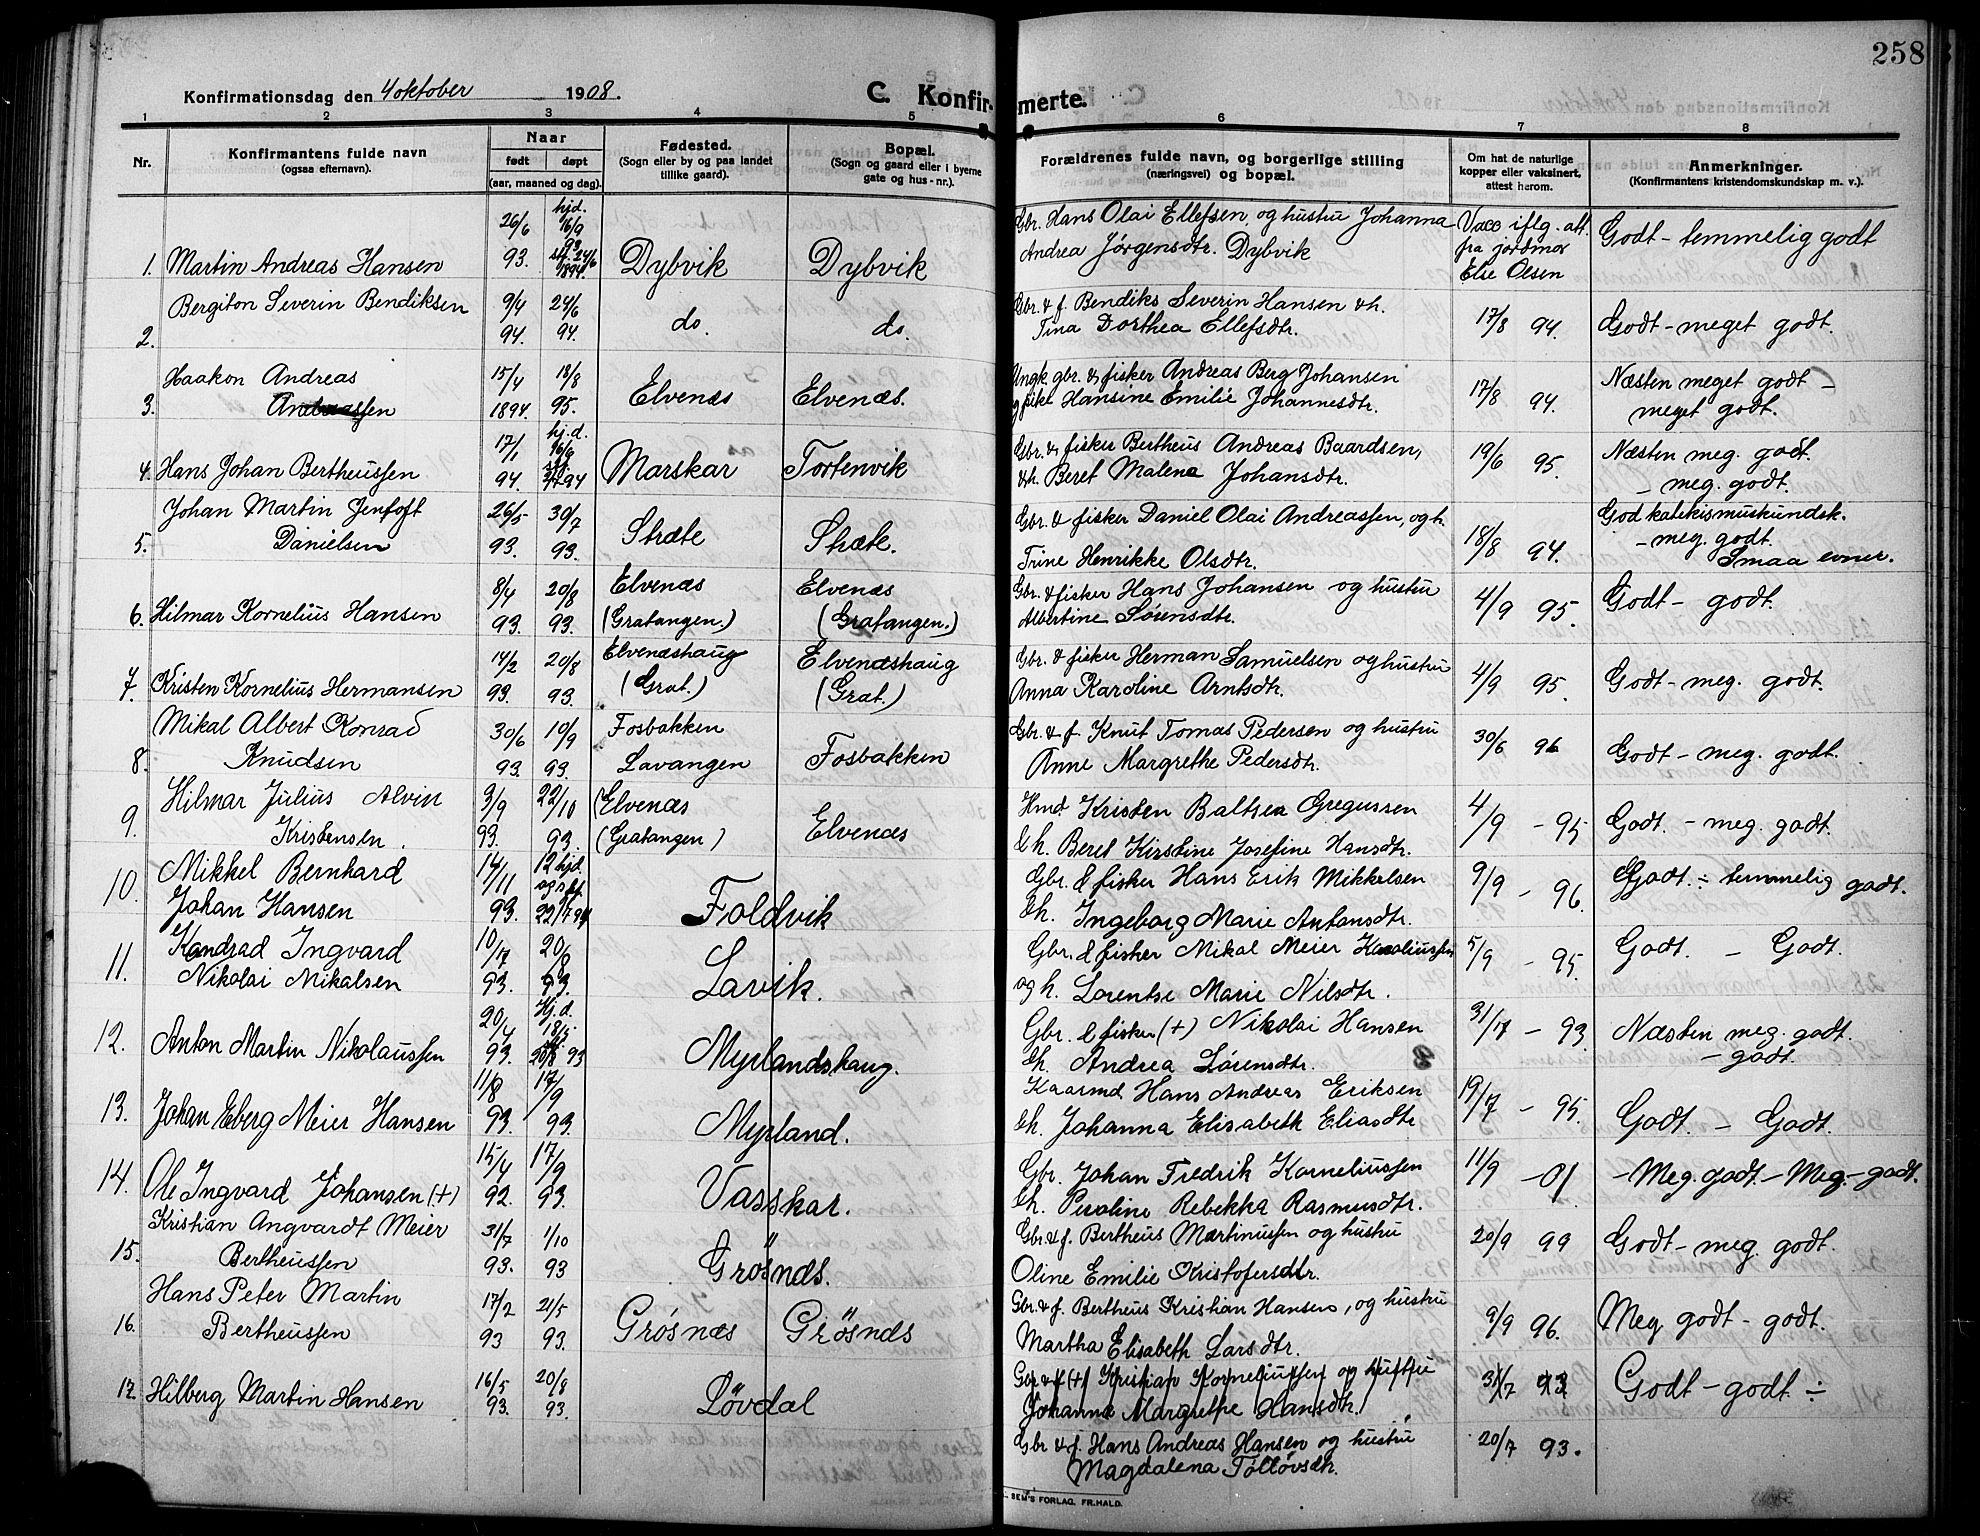 258
Konfirmationsdag den 4 oktober 1908.
C. Konfirmerte.
1 2 3 4 5 6 7 8
Nr.
Konfirmantens fulde navn
(ogsaa efternavn).
Naar
født døpt
(aar, maaned og dag).
Fødested.
(Sogn eller by og paa landet
tillike gaard).
Bopæl.
(Sogn og gaard eller i byerne
gate og hus-nr.).
Forældrenes fulde navn, og borgerlige stilling
(næringsvei) og bopæl.
Om hat de naturlige
kopper eller vaksinert,
attest herom.
Anmerkninger.
(Konfirmantens kristendomskundskap m. v.).
1. Martin Andreas Hansen
26/6 93.
hjd. 16/9 93 stf. 24/6 1894.
Dybvik Dybvik
Gbr. Hans Olai Ellefsen og hustru Johanna
Andrea Jørgensdtr. Dybvik
Vacc iflg. att.
fra jordmor
Else Olsen
Godt - temmelig godt
2. Bergiton Severin Bendiksen
9/4 94. 24/6 94.
do. do.
Gbr. & f. Bendiks Severin Hansen & h.
Tina Dorthea Ellefsdtr.
17/8 94.
Godt - meget godt.
3. Haakon Andreas
Andreassen
15/4 1894. 18/8 95.
Elvenæs Elvenæs.
Ungk. gbr. & fisker Andreas Berg Johansen
og pike Hansine Emilie Johannesdtr.
17/8 94.
Næsten meget godt -
meget godt.
4. Hans Johan Bertheussen
17/1 94. hj.d.
Marskar Tortenvik
Gbr. & fisker Bertheus Andreas Baardsen,
& h. Beret Malena Johansdtr.
19/6 95.
Næsten meg. godt.
- meg. godt.
5. Johan Martin Jentoft
Danielsen
26/5 93. 30/7 93.
Stræte Stræte.
Gbr. & fisker Daniel Olai Andreassen, og h.
Trine Henrikke Olsdtr.
18/8 94.
God katekismuskundsk.
- meg. godt.
Smaa evner.
6. Hilmar Kornelius Hansen
8/4 93. 20/8 93.
Elvenæs
(Gratangen.)
Elvenæs
(Gratangen.)
Gbr. & fisker Hans Johansen og hustru
Albertine Sørensdtr.
4/9 95.
Godt - godt.
7. Kristen Kornelius Hermansen
14/2 93. 20/8 93.
Elvenæshaug
(Grat.)
Elvenæshaug
(Grat.)
Gbr. & fisker Herman Samuelsen og hustru
Anna Karoline Arntsdtr.
4/9 95.
Godt - meg. godt.
8. Mikal Albert Konrad
Knudsen
30/6 93. 10/9 93.
Fosbakken
Lavangen
Fosbakken
Gbr. & f. Knut Tomas Pedersen og hustru
Anne Margrethe Pedersdtr.
30/6 96
Godt - meg. godt.
9. Hilmar Julius Alvin
Kristensen.
3/9 93. 22/10 93.
(Elvenæs
(Gratangen)
Elvenæs
Hmd. Kristen Baltser Gregussen
& h. Beret Kirstine Josefine Hansdtr.
4/9 - 95
Godt. - meg. godt.
10. Mikkel Bernhard
Johan Hansen
14/11 93.
Foldvik
Gbr. & fisker Hans Erik Mikkelsen
& h. Ingeborg Marie Antonsdtr.
9/9 - 96.
Godt ÷ temmelig godt.
11. Kondrad Ingvard
Nikolai Mikalsen
10/7 93. 20/8 93.
Lavik.
Gbr. & fisker Mikal Meier Karoliussen
og h. Lorentse Marie Nilsdtr.
5/9 - 95.
Godt. - Godt.
12. Anton Martin Nikolaussen
20/4 93. Hj.d. 20/8 93
Myrlandshaug.
Gbr. & fisker (+) Nikolai Hansen
& h. Andrea Sørensdtr.
31/7 - 93.
Næsten meg. godt.
- godt.
13. Johan Eberg Meier Hansen
11/8 93. 17/9 93.
Myrland.
Kaarmd Hans Andreas Eriksen
& h. Johanna Elisabeth Eliasdtr
19/7 - 95.
Godt. - Godt.
14. Ole Ingvard Johansen (+)
15/4 92. 17/9 93.
Vasskar.
Gbr. Johan Fredrik Korneliussen
& h. Peroline Rebekka Rasmusdtr.
11/9 - 01
- Meg. godt. - Meg. - godt.
15. Kristian Angvardt Meier
Bertheussen
31/7 93. 1/10 93
Grøsnæs.
Gbr. & f. Bertheus Martinussen og hustru
Oline Emilie Kristofersdtr.
20/9 99
Godt - meg. godt.
16. Hans Peter Martin
Bertheussen
17/2 93 21/5 93.
Grøsnæs Grøsnæs
Gbr. & f. Bertheus Kristian Hansen, og hustru
Martha Elisabeth Larsdtr.
9/9 96.
Meg godt - godt.
17. Hilberg Martin Hansen
16/5 93. 20/8 93.
Løvdal
Gbr. & f. (+) Kristian Korneliussen og hustru
Johanna Margrethe Hansdtr.
31/7 93
Godt - godt ÷
Gbr & f. Hans Andreas Hansen og hustru
Magdalena Tolløvsdtr.
20/7 93.
SEM'S FORLAG, FR.HALD.